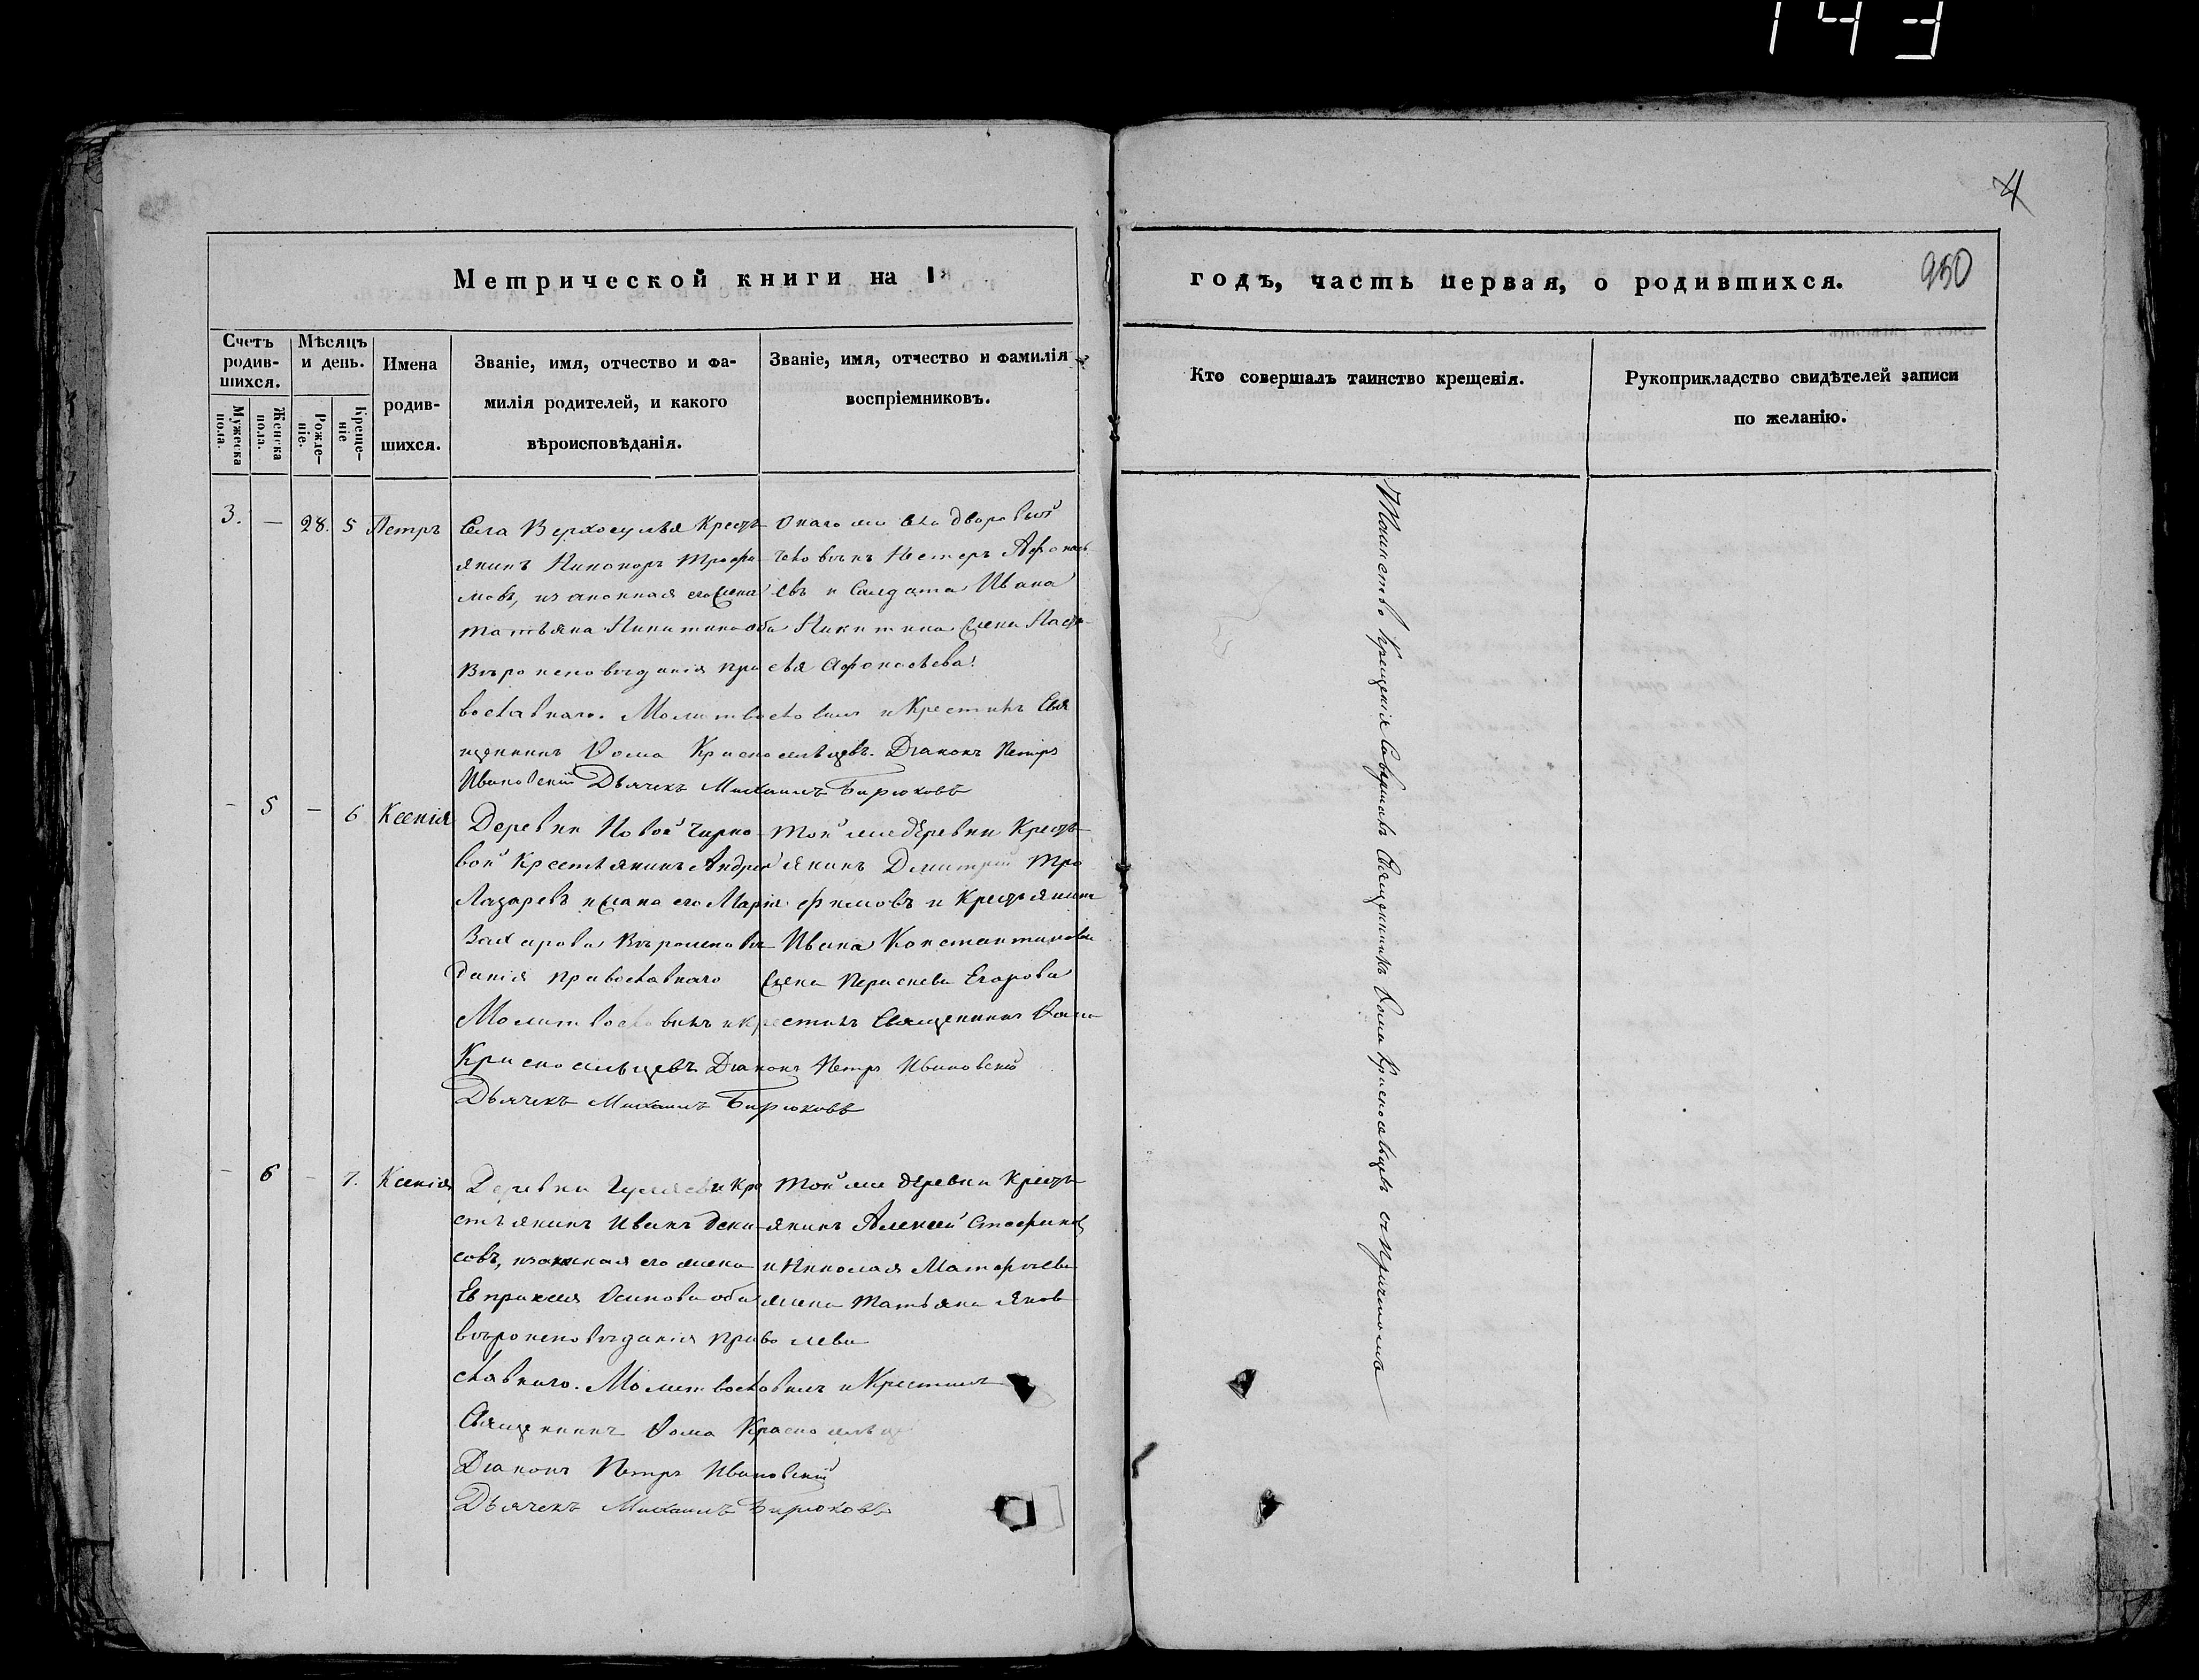 143
4
Метрической книги на 1
годъ, часть первая, о родившихся.
950
Счетъ родив-шихся.
Мужеска пола.
Женска пола.
Мѣсяцъ и день.
Рожде-ніе.
Креще-ніе
Имена
родив-
шихся.
Званіе, имя, отчество и фа-
милія родителей, и какого
вѣроисповѣданія.
Званіе, имя, отчество и фамилія
воспріемниковъ.
Кто совершалъ таинство крещенія.
Рукоприкладство свидѣтелей записи
по желанію.
3. — 28. 5 Петръ
Села Верхосулья Кресть-
янинъ Никоноръ Трофи-
мовъ, и законная его жена
Татьяна Никитина оба
Вѣроисповѣданія пра
вославнаго. Молитвословилъ и Крестилъ Свя
щенникъ Фома Красносельцевъ. Діаконъ Петръ
Ивановскій Дьячекъ Михаилъ Бирюковъ
Онаго же села дворовый
человѣкъ Нестеръ Афонась
евъ и Солдата Ивана
Никитина жена Наста-
сья Афонасьева.
— 5 — 6 Ксенія
Деревни Новой
вой Крестьянинъ Андрей
Лазаревъ и жена его Марія
Захарова Вѣроисповѣ-
данія православнаго
Молитвословилъ и крестилъ Священникъ Фома
Красносельцевъ Діаконъ Петръ Ивановскій
Дьячекъ Михаилъ Бирюковъ
Той же деревни Кресть-
янинъ Дмитрій Тро
фимовъ и Крестьянина
Ивана Константинова
жена Парасева Егорова
— 6 — 7. Ксенія
Деревни Кре
стьянинъ Иванъ Дени-
совъ, и законная его жена
Евпраксея Осипова оба
вѣроисповѣданія право
славнаго. Молитвословилъ и Крестилъ
Священникъ Фома Красносельц
Діаконъ Петръ Ивановскій
Дьячекъ Михаилъ Бирюковъ
Той же деревни Кресть
янинъ Алексей
и Николая Матфѣева
жена Татьяна Яков
лева
Таинство Крещенія Совершалъ Священникъ Фома Красносельцевъ съ Причтомъ